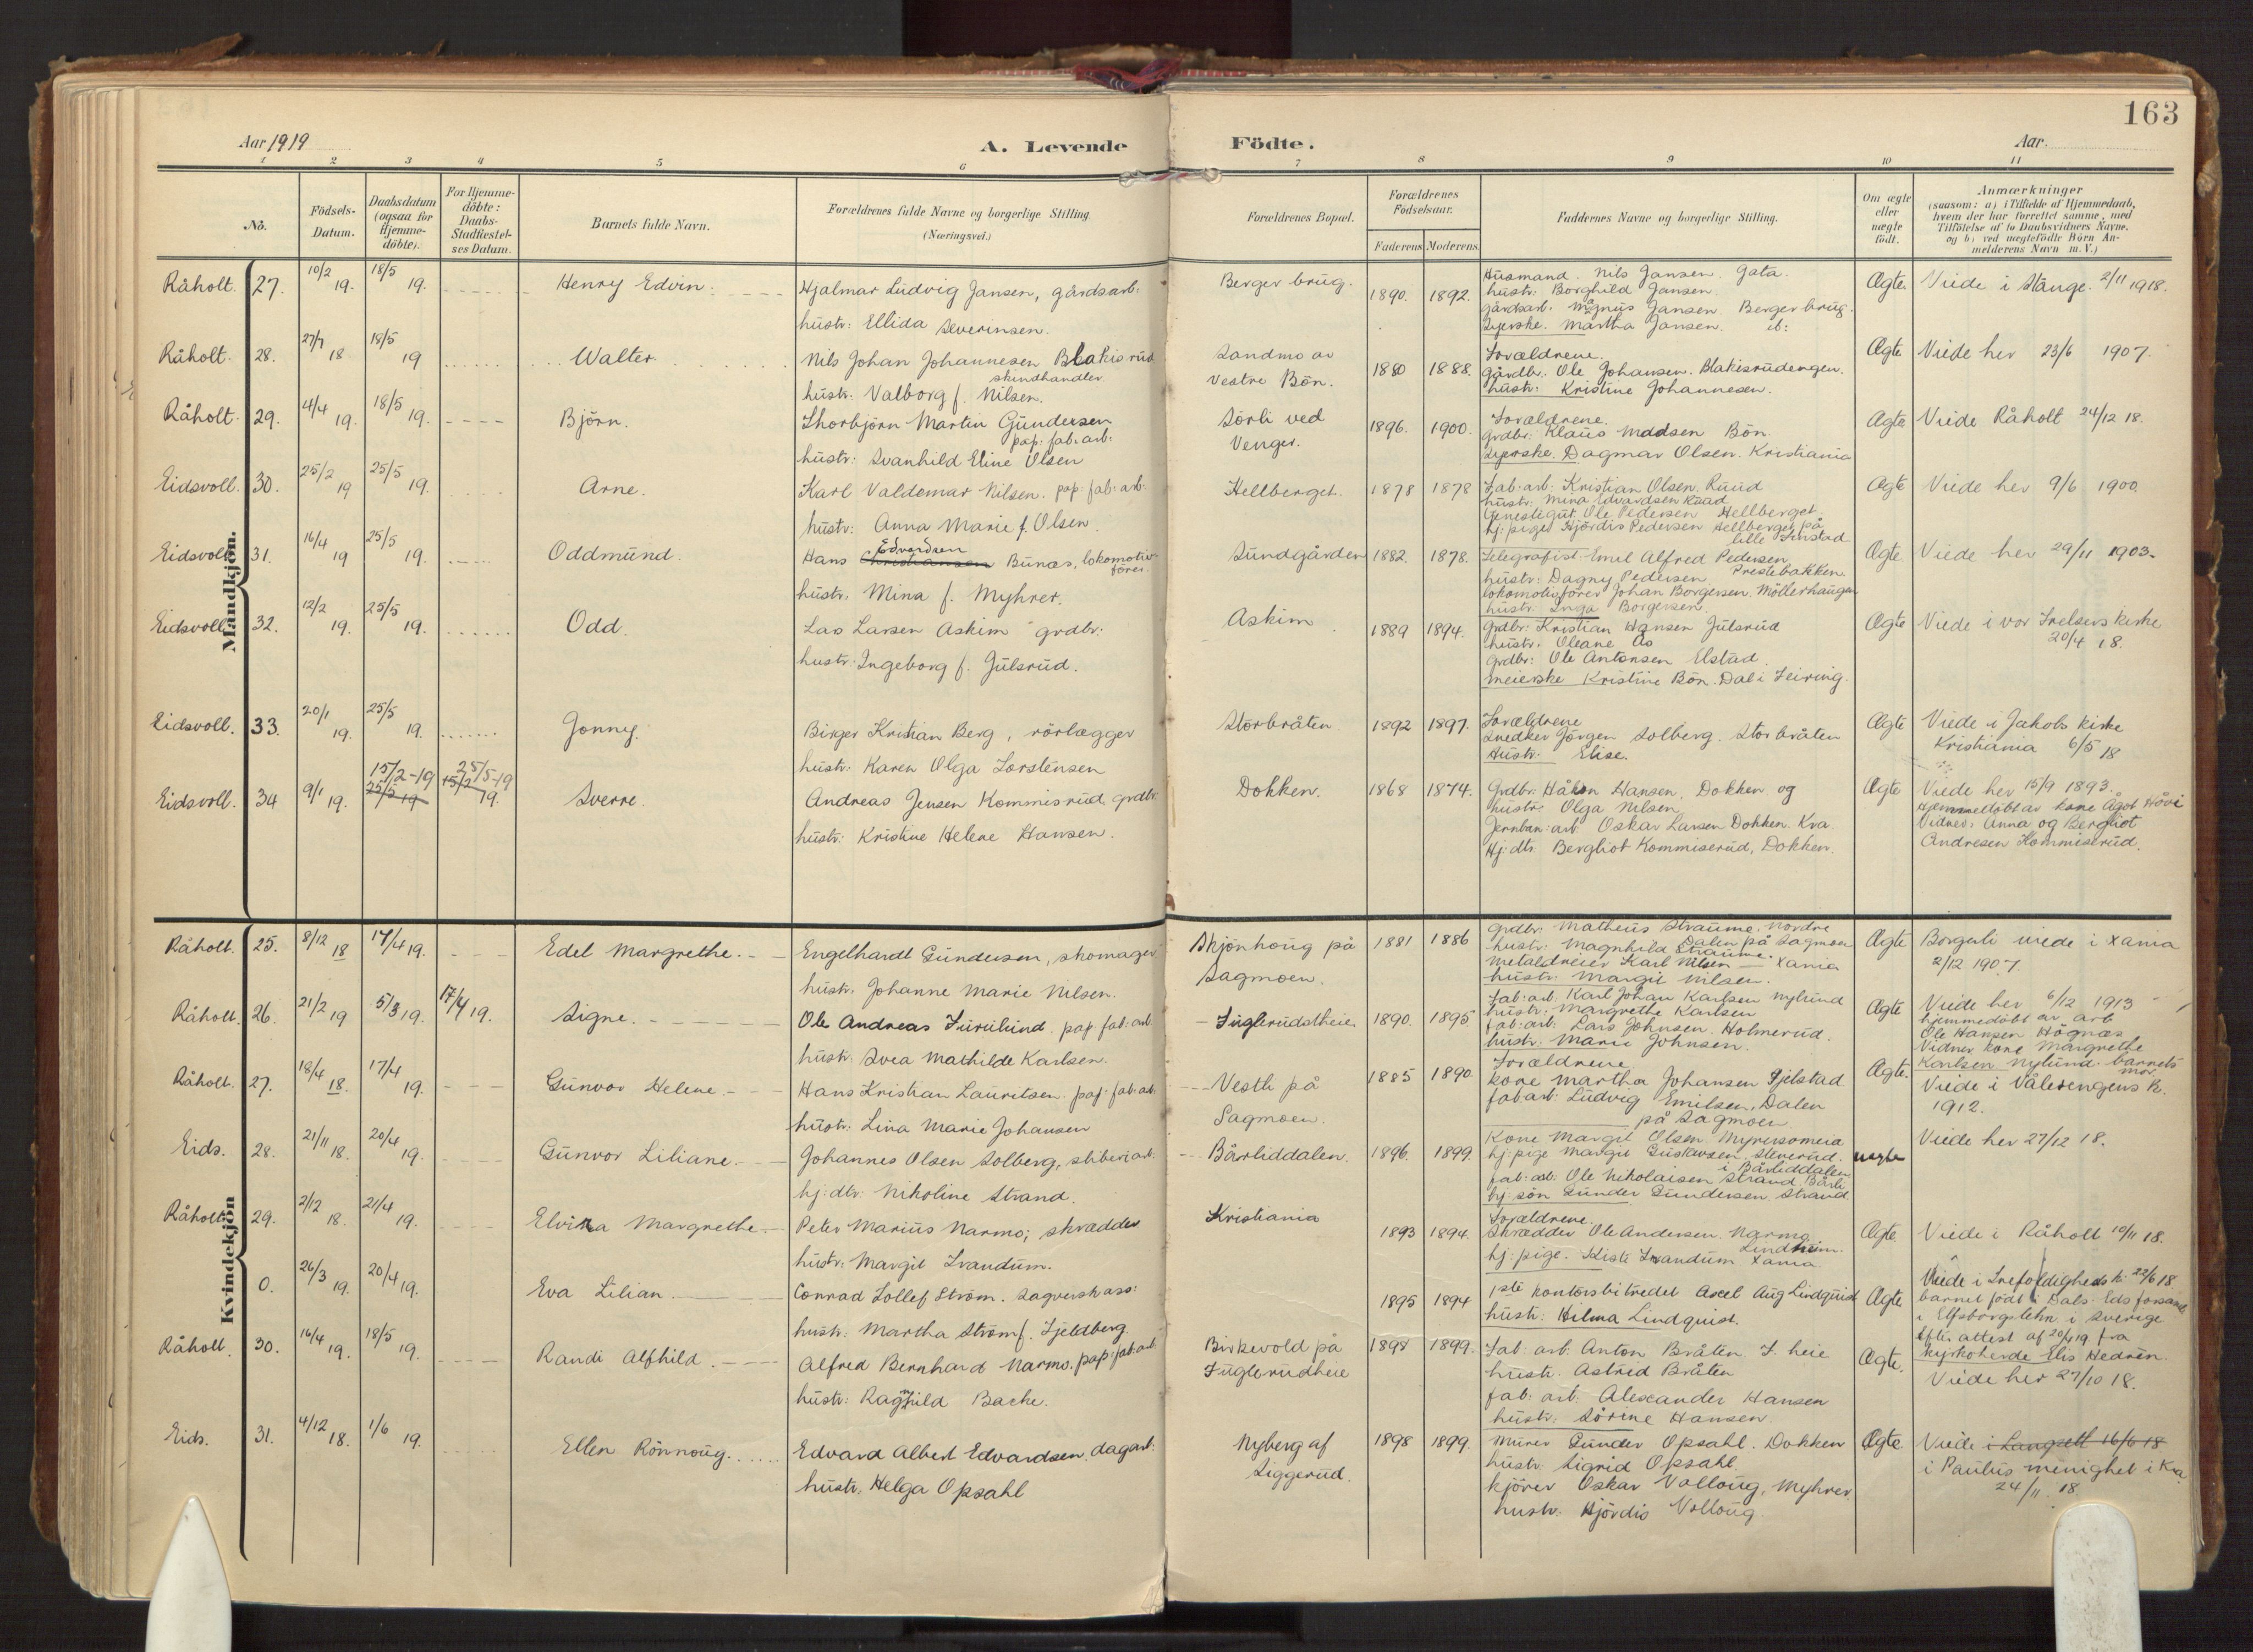 163
Aar 1919
A. Levende Födte.
Aar
1 2 3 4 5 6 7 8 9 10 11
No.
Födsels-Datum.
Daabsdatum (ogsaa for Hjemme-döbte).
For Hjemme-döbte: Daabs-Stadfæstel-ses Datum.
Barnets fulde Navn.
Forældrenes fulde Navne og borgerlige Stilling.
(Næringsvei.)
Forældrenes Bopæl.
Forældrenes Födselsaar.
Faderens Moderens
Faddernes Navne og borgerlige Stilling.
Om ægte eller uægte födt.
Anmærkninger
(saasom: a) i Tilfælde af Hjemmedaab,
hvem der har forrettet samme, med
Tilföielse af to Daabsvidners Navne,
og b) ved uægtefödte Börn An-
melderens Navn m. V.)
Mandkjön.
Råholt. 27. 10/2 19. 18/5 19. Henry Edvin.
Hjalmar Ludvig Jansen, gårdsarb:
hustr: Ellida Severinsen.
Berger brug. 1890. 1892.
Husmand. Nils Jansen. Gata.
hustr: Borghild Jansen
gårdsarb. Magnus Jansen. Berger brug.
Syerske. Martha Jansen. ib:
Ægte. Viede i Stange. 2/11 1918.
Råholt. 28. 27/7 18 18/5 19 Walter.
Nils Johan Johannesen Blakisrud
skindhandler
hustr: Valborg f. Nilsen.
Sandmo av
Vestre Bön.
1880 1888.
Forældrene.
Gårdbr: Ole Johansen. Blakisrudengen.
hustr: Kristine Johannesen.
Ægte. Viede her 23/6 1907.
Råholt. 29. 4/4 19. 18/5 19. Björn.
Thorbjörn Martin Gundersen
pap: fab: arb:
hustr: Svanhild Eline Olsen
Sörli ved
Venger.
1896. 1900.
Forældrene.
Grdbr: Klaus Madsen Bön.
Syerske. Dagmar Olsen. Kristiania
Ægte Viede Råholt 24/12 18.
Eidsvoll. 30. 25/2 19 25/5 19. Arne.
Karl Valdemar Nilsen. pap: fab: arb:
hustr: Anna Marie f. Olsen.
Hellberget. 1878 1878
Fab: arb: Kristian Olsen. Ruud
hustr: Mina Edvardsen Ruud
Tjenestegut. Ole Pedersen Hellberget.
hj: pige Hjördis Pedersen Hellberget på
lille Finstad
Ægte Viede her 9/6 1900.
Eidsvoll. 31. 16/4 19 25/5 19. Oddmund.
Edvardsen
Hans Christiansen Bunæs, lokomotiv-
förer.
hustr: Mina f. Myhrer.
Sundgården 1882. 1878.
Telegrafist. Emil Alfred Pedersen
Prestebakken.
hustr: Dagny Pedersen
lokomotivförer Johan Borgersen. Möllerhaugen
hustr: Inga Borgersen.
Ægte. Viede her 29/11 1903.
Eidsvoll. 32. 12/2 19. 25/5 19. Odd.
Lars Larsen Askim grdbr:
hustr: Ingeborg f. Julsrud.
Askim 1889 1894.
Grdbr: Kristian Hansen Julsrud
hustr: Oleane Ås
Grdbr: Ole Antonsen Elstad.
meierske Kristine Bön. Dal i Feiring.
Ægte Viede i vor Frelsers kirke
20/4 18.
Eidsvoll. 33. 20/1 19. 25/5 19. Gonny.
Birger Kristian Berg, rörlægger
hustr: Karen Olga Torstensen
Storbråten 1892 1897.
Forældrene
Snedker Jörgen Solberg. Storbråten
Hustr: Elise.
Ægte Viede i Jakobs kirke
Kristiania 6/5 18
Eidsvoll. 34 9/1 19. 15/2-19 25/5 19 25/5-19 15/2 19. Sverre.
Andreas Jensen Kommisrud, grdbr.
hustr: Kristine Helene Hansen.
Dokken. 1868 1874.
Grdbr: Håkon Hansen. Dokken og
hustr: Olga Nilsen
Jernban: arb: Oskar Larsen Dokken. Kra.
Hj: dtr. Bergliot Kommiserud, Dokken.
Ægte Viede her 15/9 1893.
Hjemmedöbt av kone Ågot Hövi
Vidner: Anna og Bergliot
Andresen Kommiserud.
Kvindekjön
Råholt. 25. 8/12 18 17/4 19. Edel Margrethe.
Engelhardt Gundersen, skomager
hustr. Johanne Marie Nilsen.
Skjönhoug på
Sagmoen.
1881 1886
Grdbr: Matheus Straume. Nordre
Dalen på Sagmoen
hustr: Magnhild Straume.
Metaldreier Karl Nilsen — Xania
hustr: Margit Nilsen.
Ægte Borgerli viede i Xania
2/12 1907.
Råholt. 26. 21/2 19 5/3 19. 17/4 19. Signe.
Ole Andreas Furulund. pap fab: arb.
hustr. Svea Mathilde Karlsen.
Fuglerudstheie 1890. 1895
Fab: arb: Karl Johan Karlsen Nylund
hustr: Margrethe Karlsen
fab: arb: Lars Johnsen. Holmerud.
hustr: Marie Johnsen.
Ægte Viede her 6/12 1913
hjemmedöbt av arb
Ole Hansen Högnæs
Vidner kone Margrethe
Karlsen Nylund. barnets
mor.
Råholt. 27. 18/4 18. 17/4 19. Gunvor Helene.
Hans Kristian Lauritsen. pap: fab: arb.
hustr: Lina Marie Johansen
Vestli på
Sagmoen.
1885 1890
Forældrene
kone Martha Johansen Fjelstad
fab: arb: Ludvig Emilsen, Dalen
på Sagmoen
Ægte. Viede i Vålerengens K.
1912.
Eids. 28. 21/11 18. 20/4 19. Gunvor Liliane.
Johannes Olsen Solberg, sliberiarb.
hj: dtr: Nikoline Strand.
Bårliddalen. 1896. 1899.
Kone Margit Olsen
hj: pige Margit Gustavsen. Steverud.
i Bårliddalen
fab: arb: Ole Nikolaisen Strand. Bårli
hj: sön Gunder Gundersen Strand
uægte Viede her 27/12 18.
Råholt. 29. 2/12 18. 21/4 19. Elvira Margrethe.
Peter Marius Narmo; skrædder
hustr: Margit Trandum.
Kristiania 1893 1894.
Forældrene.
Skrædder Ole Andersen. Narmo
Lindheim.
hj: pige. Kiste Trandum Xania.
Ægte Viede i Råholt 10/11 18.
0. 26/3 19. 20/4 19. Eva Lilian.
Conrad Tollef Ström. Sagverskass:
hustr: Martha Ström f. Fjeldberg.
1895 1894
1ste kontorsbitredet Axel Aug Lindquist
hustr: Hilma Lindquist.
Ægte Viede i Trefoldigheds k: 22/6 18
barnet födt i Dals-Eds forsaml.
i Elfsborgslehn i Sverige
Efter attest af 20/4 19 fra
Kyrkoherde Elis Hedrén.
Råholt. 30. 16/4 19. 18/5 19. Randi Alfhild.
Alfred Bernhard Narmo. pap: fab: arb.
hustr: Ragnhild Bache.
Birkevold på
Fuglerudheie
1898 1899.
Fab: arb: Anton Bråten F. heie
hustr. Astrid Bråten
fab: arb: Alexander Hansen
hustr: Sörine Hansen
Ægte. Viede her 27/10 18.
Eids. 31. 4/12 18. 1/6 19. Ellen Rönnoug.
Edvard Albert Edvardsen, dagarb:
hustr: Helga Opsahl
Nyberg af
Liggerud.
1898 1899.
Murer Gunder Opsahl. Dokken
hustr: Sigrid Opsahl
kjörer Oskar Volloug, Myhrer.
hustr: Hjördis Volloug.
Ægte Viede i Langsett 16/6 18
i Paulus menighet i Kra.
24/11 18